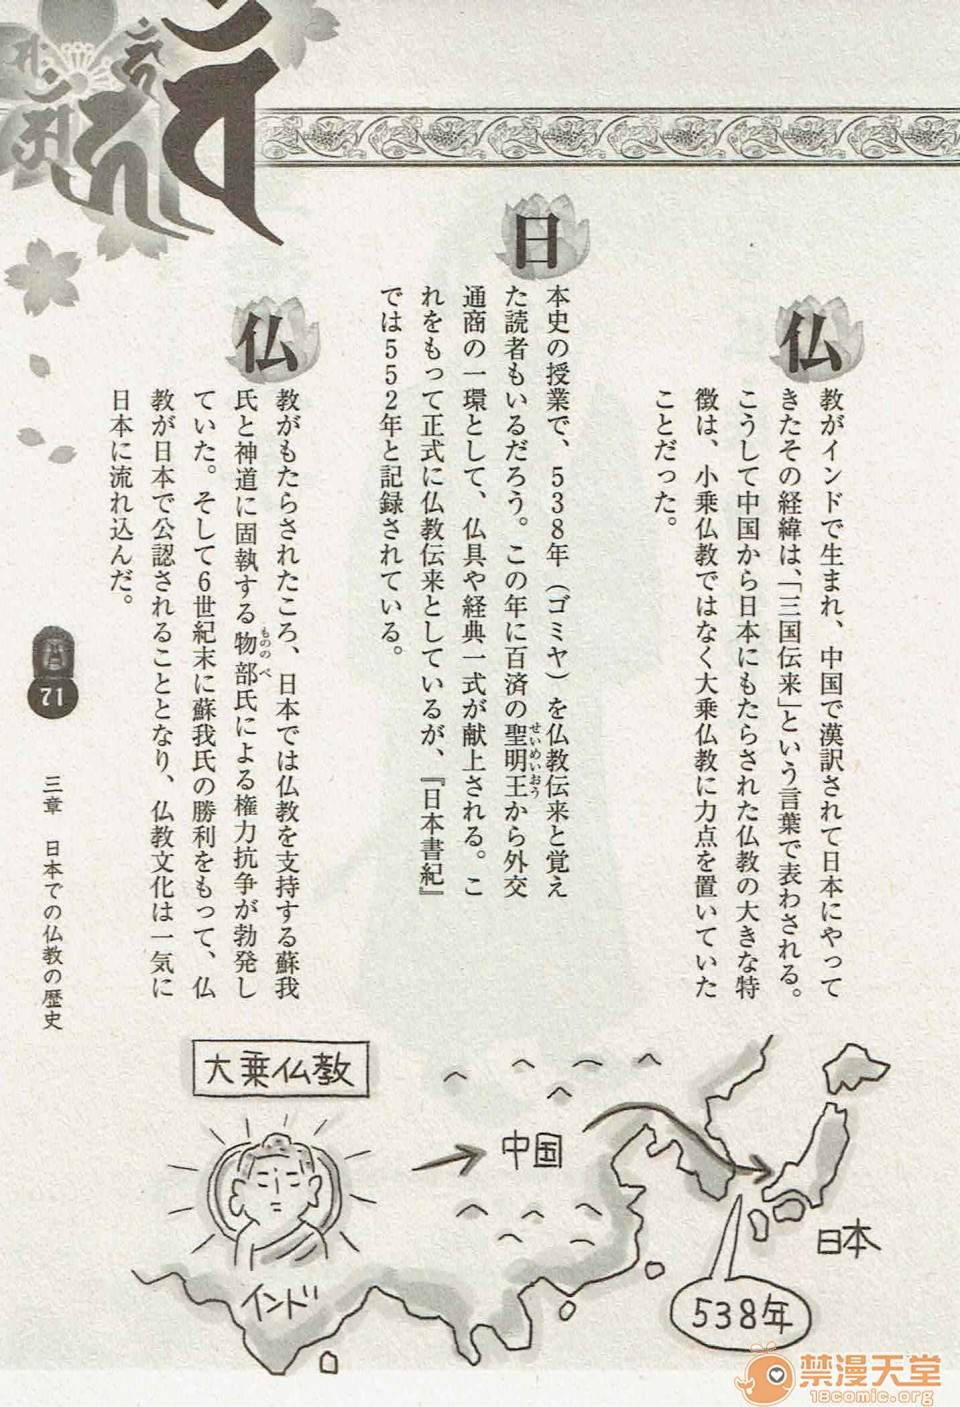 仏教がインドで生まれ、中国で漢訳されて日本にやって
きたその経緯は、「三国伝来」という言葉で表わされる。
こうして中国から日本にもたらされた仏教の大きな特
徴は、小乗仏教ではなく大乗仏教に力点を置いていた
ことだった。
日本史の授業で、538年（ゴミヤ）を仏教伝来と覚え
た読者もいるだろう。この年に百済の聖明王から外交
せいめいおう
通商の一環として、仏具や経典一式が献上される。こ
れをもって正式に仏教伝来としているが、『日本書紀』
では552年と記録されている。
仏教がもたらされたころ、日本では仏教を支持する蘇我
氏と神道に固執する物部氏による権力抗争が勃発し
もののべ
ていた。そして6世紀末に蘇我氏の勝利をもって、仏
教が日本で公認されることとなり、仏教文化は一気に
日本に流れ込んだ。
71
三章 日本での仏教の歴史
大乗仏教
インド
中国
日本
538年
禁漫天堂
18comic.org